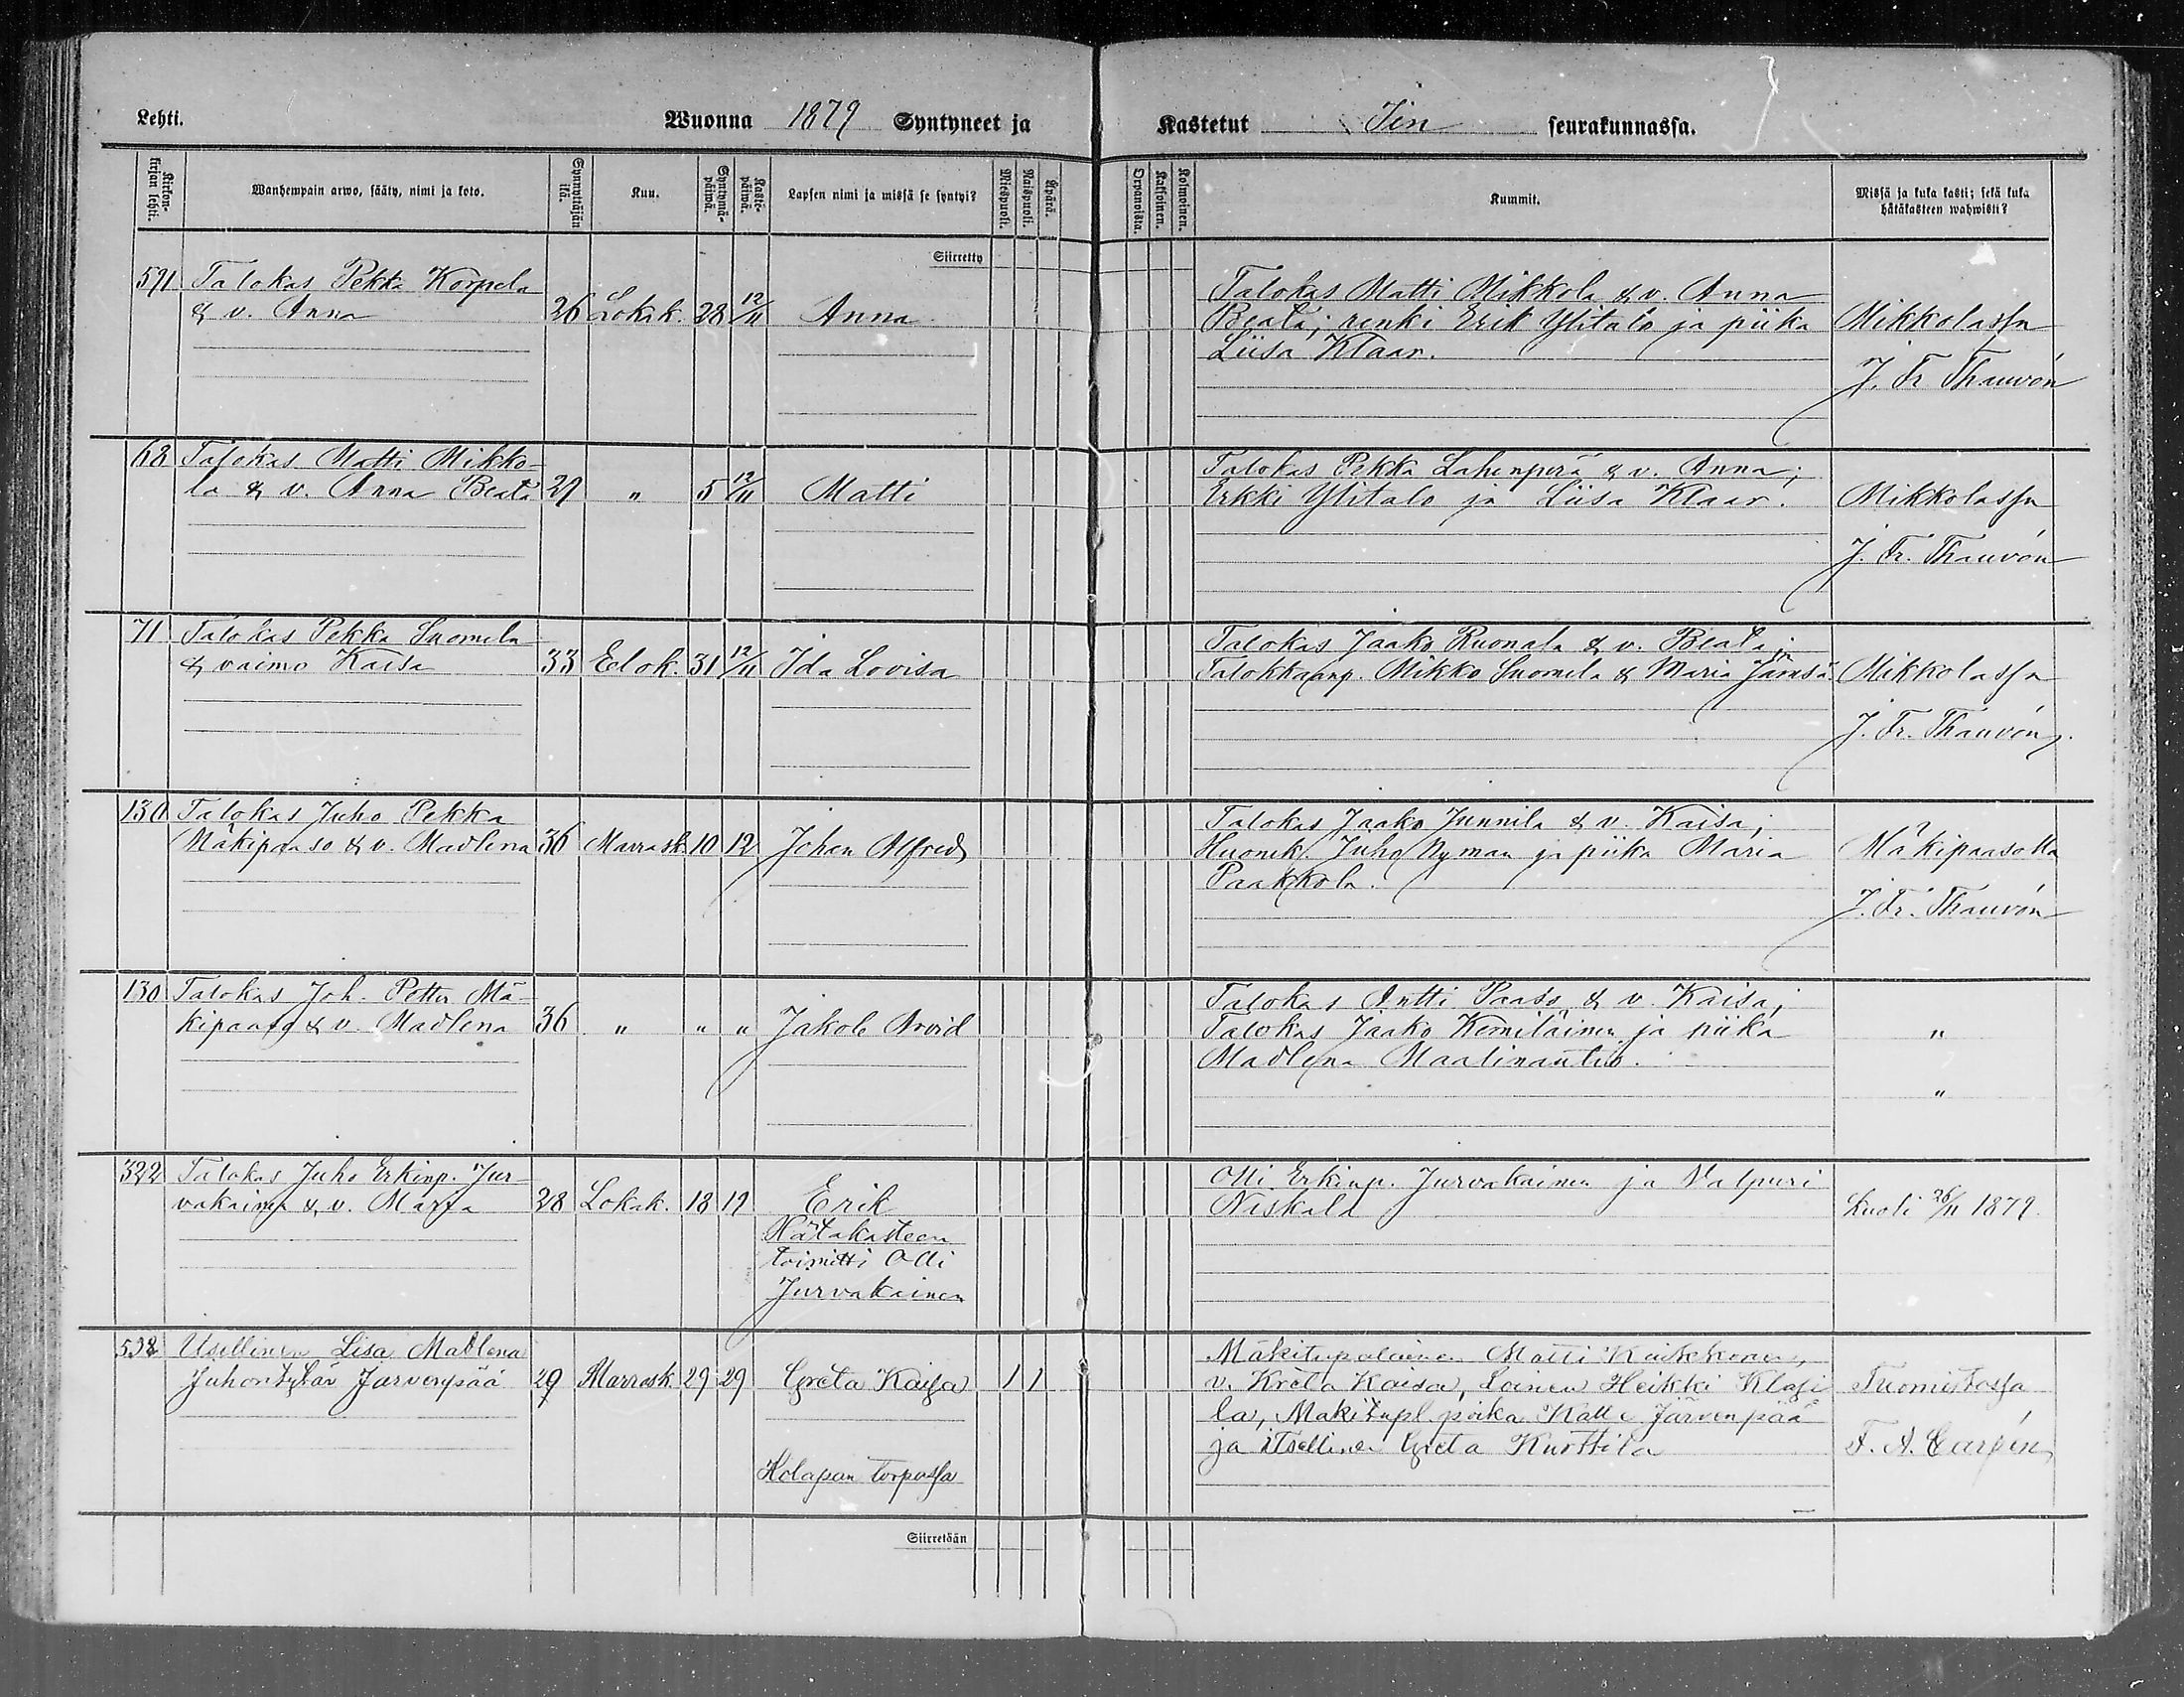 Lehti.
Wuonna 1879 Syntyneet ja
Kastetut Iin seurakunnassa.
Kirkonkirjan lehti.
Wanhempain arwo, sääty, nimi ja koto.
Synnyttäjän ikä.
Kuu.
Syntymäpäiwä.
Kastepäiwä.
Lapsen nimi ja missä se syntyi?
Miespuoli.
Naispuoli.
Äpärä.
Orpanoista.
Kaksoinen.
Kolmoinen.
Kummit.
Missä ja kuka kasti; sekä kuka
hätäkasteen wahwisti?
Siirretty
591 Talokas Pekka Korpela
& v. Anna 26 Lokak. 28 12/11 Anna
Talokas Matti Mikkola & v. Anna
Beata; renki Erik Ylitalo ja piika
Liisa Klaar.
Mikkolassa
J. Fr Thauvón
68 Talokas Matti Mikko-
la & v. Anna Beata 29 " 5 12/11 Matti
Talokas Pekka Lahenperä & v. Anna;
Erkki Ylitalo ja Liisa Klaar.
Mikkolassa
J. Fr. Thauvón
71 Talokas Pekka Suomela
& vaimo Kaisa 33 Elok. 31 12/11 Ida Lovisa
Talokas Jaako Ruonala & v. Beata;
Talokkaanp. Mikko Suomela & Maria Jämsä.
Mikkolassa
J. Fr. Thauvón
130 Talokas Juho Pekka
Mäkipaaso & v. Madlena 36 Marrask. 10 12 Johan Alfred
Talokas Jaako Junnila & v. Kaisa;
Huonek. Juho Nyman ja piika Maria
Paakkola.
Mäkipaasolla
J. Fr. Thauvón
130 Talokas Joh. Petter Mä-
kipaaso & v. Madlena 36 " " " Jakob Arvid
Talokas Antti Paaso & v. Kaisa;
Talokas Jaako Kemiläinen ja piika
Madlena Maalinautio.
"
"
322 Talokas Juho Erkinp. Jur-
vakainen & v. Marja 28 Lokak. 18 19 Erik
Hätäkasteen
toimitti Olli
Jurvakainen
Olli Erkinp. Jurvakainen ja Valpuri
Niskala
Kuoli 26/11 1879.
538 Itsellinen Lisa Madlena
Juhontytär Järvenpää 29 Marrask. 29 29 Greta Kaisa 1 1
Kolapan torpassa
Mäkitupalainen Matti Kuikkonen,
v. Kreta Kaisa, Loinen Heikki
la, Mäkitupl. poika Kalle Järvenpää
ja itsellinen Greta Kurttila
Tuomistossa
F. A. Carpén
Siirretään